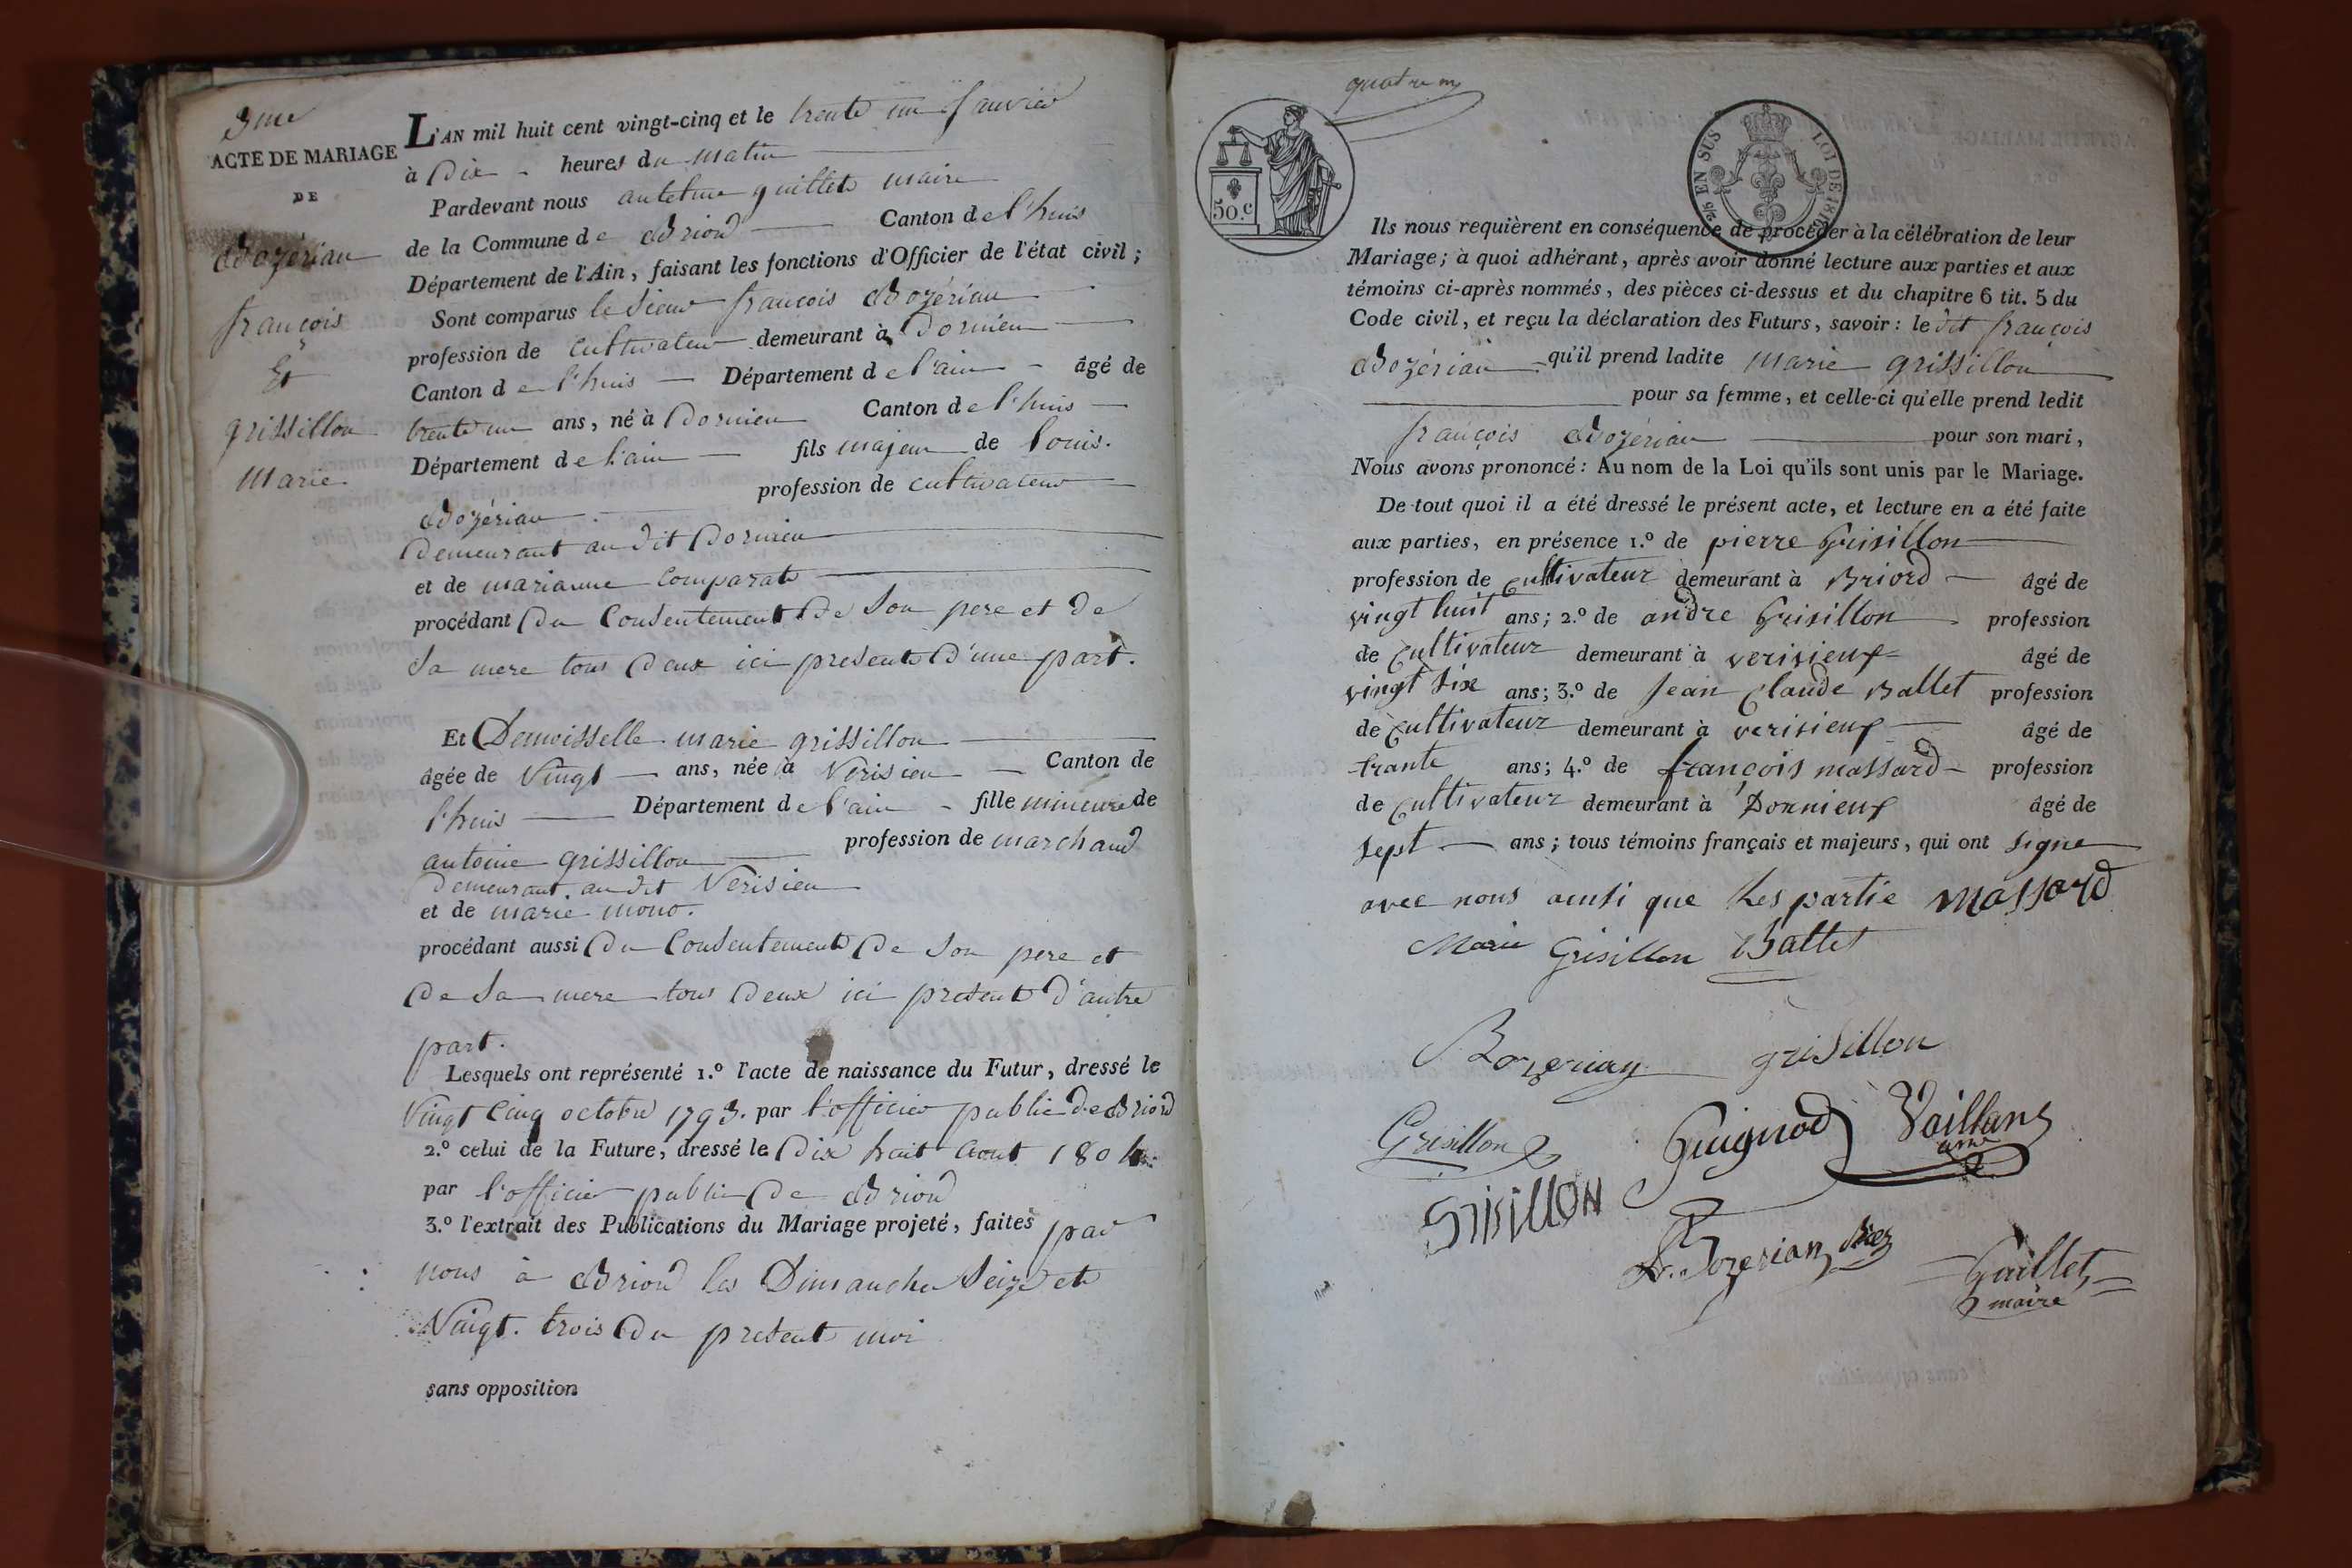 3me
ACTE DE MARIAGE
DE
Bozérian
françois
Et
grissillon
Marie.
L'AN mil huit cent vingt-cinq et le trente un Janvier
à Dix heures du Matin
Pardevant nous antelme guillet maire
de la Commune de Briord Canton de l'huis
Département de l'Ain, faisant les fonctions d'Officier de l'état civil;
Sont comparus le Sieur françois Bozérian
profession de Cultivateur demeurant à Dornieu
Canton de l'huis Département de l'ain âgé de
trente un ans, né à Dornieu Canton de l'huis
Département de l'ain fils majeur de Louis.
Bozérian profession de cultivateur
Demeurant au dit Dornieu
et de marianne Comparat
procédant Du Consentement De Son pere et de
Sa mere tous Deux ici presents D'une part.
Et Demoisselle marie grissillon
âgée de Vingt ans, née à Verisieu Canton de
l'huis Département de l'ain fille mineure de
antoine grissillon profession de marchand
Demeurant au dit Verisieu
et de marie mono.
procédant aussi Du Consentement De Son pere et
De Sa mere tous Deux ici present D'autre
part.
Lesquels ont représenté 1.º l'acte de naissance du Futur, dressé le
Vingt Cinq octobre 1793. par l'officier public de Briord
2.º celui de la Future, dressé le Dix huit Aout 1804.
par l'officier public De Briord
3.º l'extrait des Publications du Mariage projeté, faites par
nous à Briord les Dimanche Seize et
Vingt. trois Du present moi
sans opposition
quatre
50.c
2/5 EN SUS
LOI DE 1816
Ils nous requièrent en conséquence de procéder à la célébration de leur
Mariage; à quoi adhérant, après avoir donné lecture aux parties et aux
témoins ci-après nommés, des pièces ci-dessus et du chapitre 6 tit. 5 du
Code civil, et reçu la déclaration des Futurs, savoir: le dit françois
Bozérian qu'il prend ladite Marie grissillon
pour sa femme, et celle-ci qu'elle prend ledit
françois Bozérian pour son mari,
Nous avons prononcé: Au nom de la Loi qu'ils sont unis par le Mariage.
De tout quoi il a été dressé le présent acte, et lecture en a été faite
aux parties, en présence 1.º de pierre Grisillon
profession de Cultivateur demeurant à Briord âgé de
vingt huit ans; 2.º de andre Grisillon profession
de Cultivateur demeurant à verisieux âgé de
vingt six ans; 3.º de Jean Claude Ballet profession
de Cultivateur demeurant à verisieux âgé de
trante ans; 4.º de françois massard profession
de Cultivateur demeurant à Dornieux âgé de
sept ans; tous témoins français et majeurs, qui ont signe
avec nous ainsi que les partie Massard
Marie Grisillon Ballet
Bozerian grisillon
Grisillon Guignod Vaillant
ainé
GrisillON
Bozerian
Guillet
maire